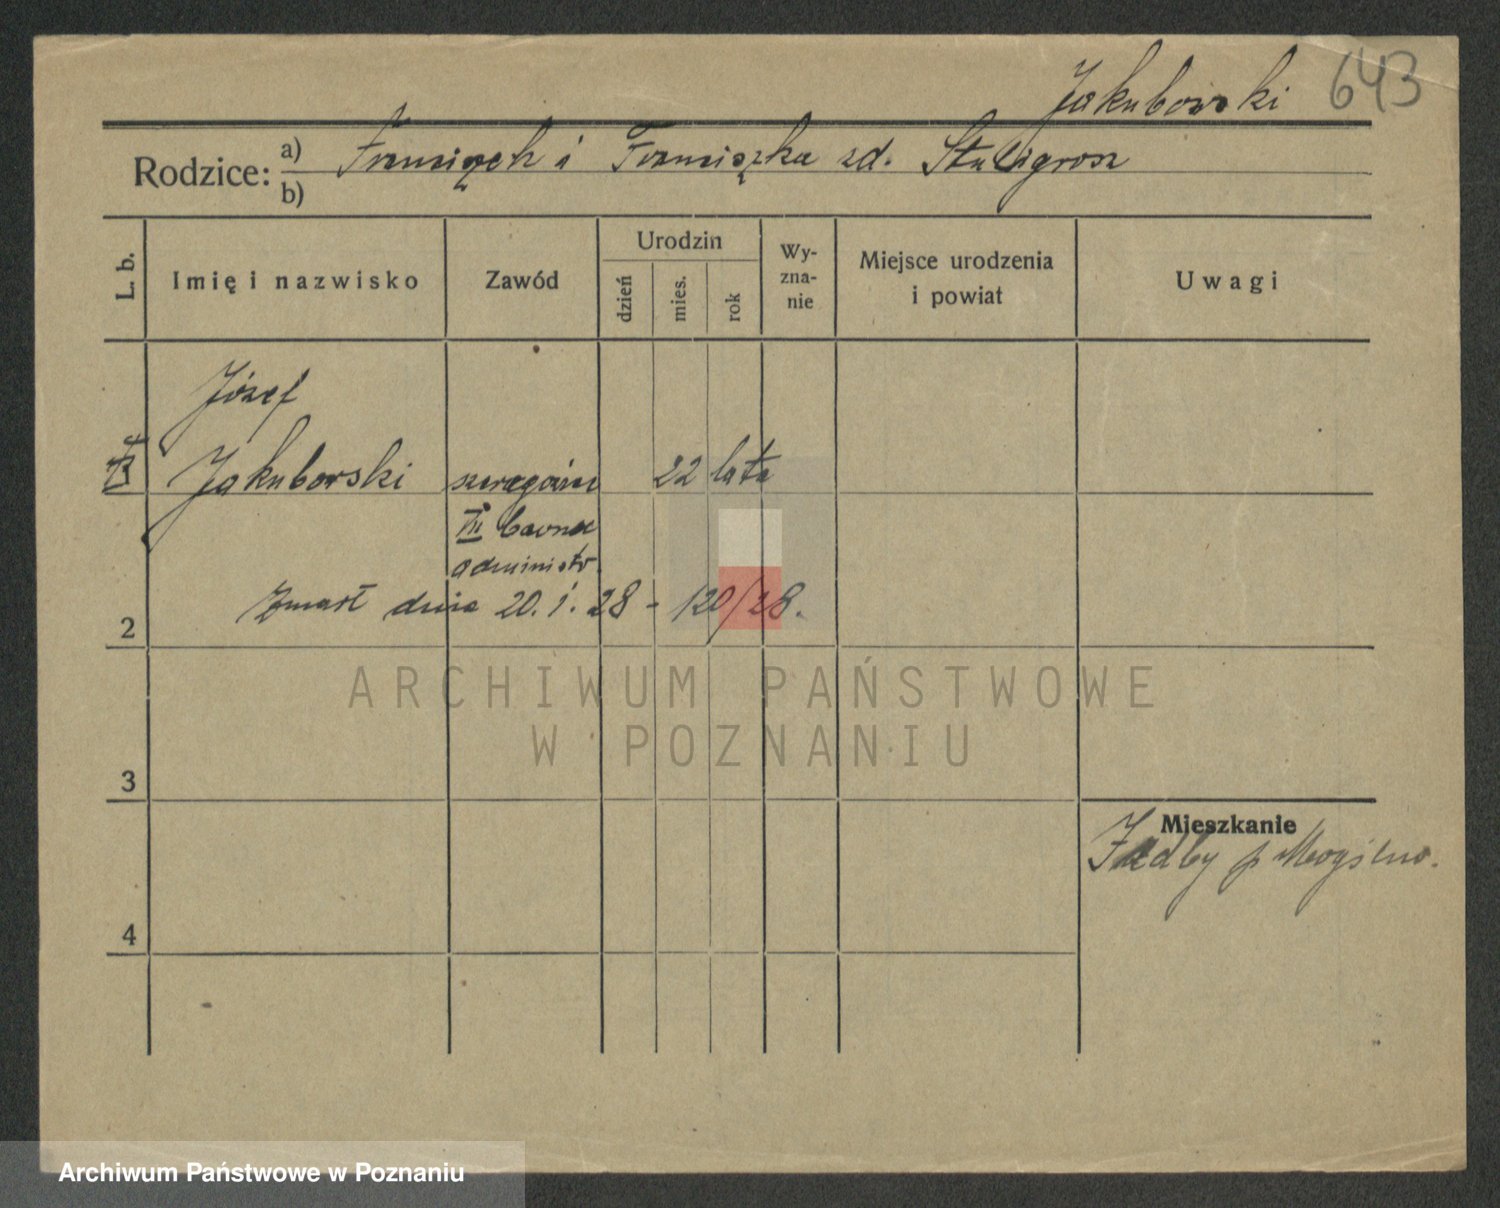 Jakubowski 643
Rodzice: a) Franciszek i Franciszka zd. Stuligrosz
b)
L. b.
Imię i nazwisko
Zawód
Urodzin
dzień
mies.
rok
Wy-
zna-
nie
Miejsce urodzenia
i powiat
Uwagi
Józef
Jakubowski szeregowiec 22 lata
VII baonu
administr.
Zmarł dnia 20. I. 28 - 120/28.
2
ARCHIWUM PAŃSTWOWE
W POZNANIU
3
Mieszkanie
p Mogilno.
4
Archiwum Państwowe w Poznaniu